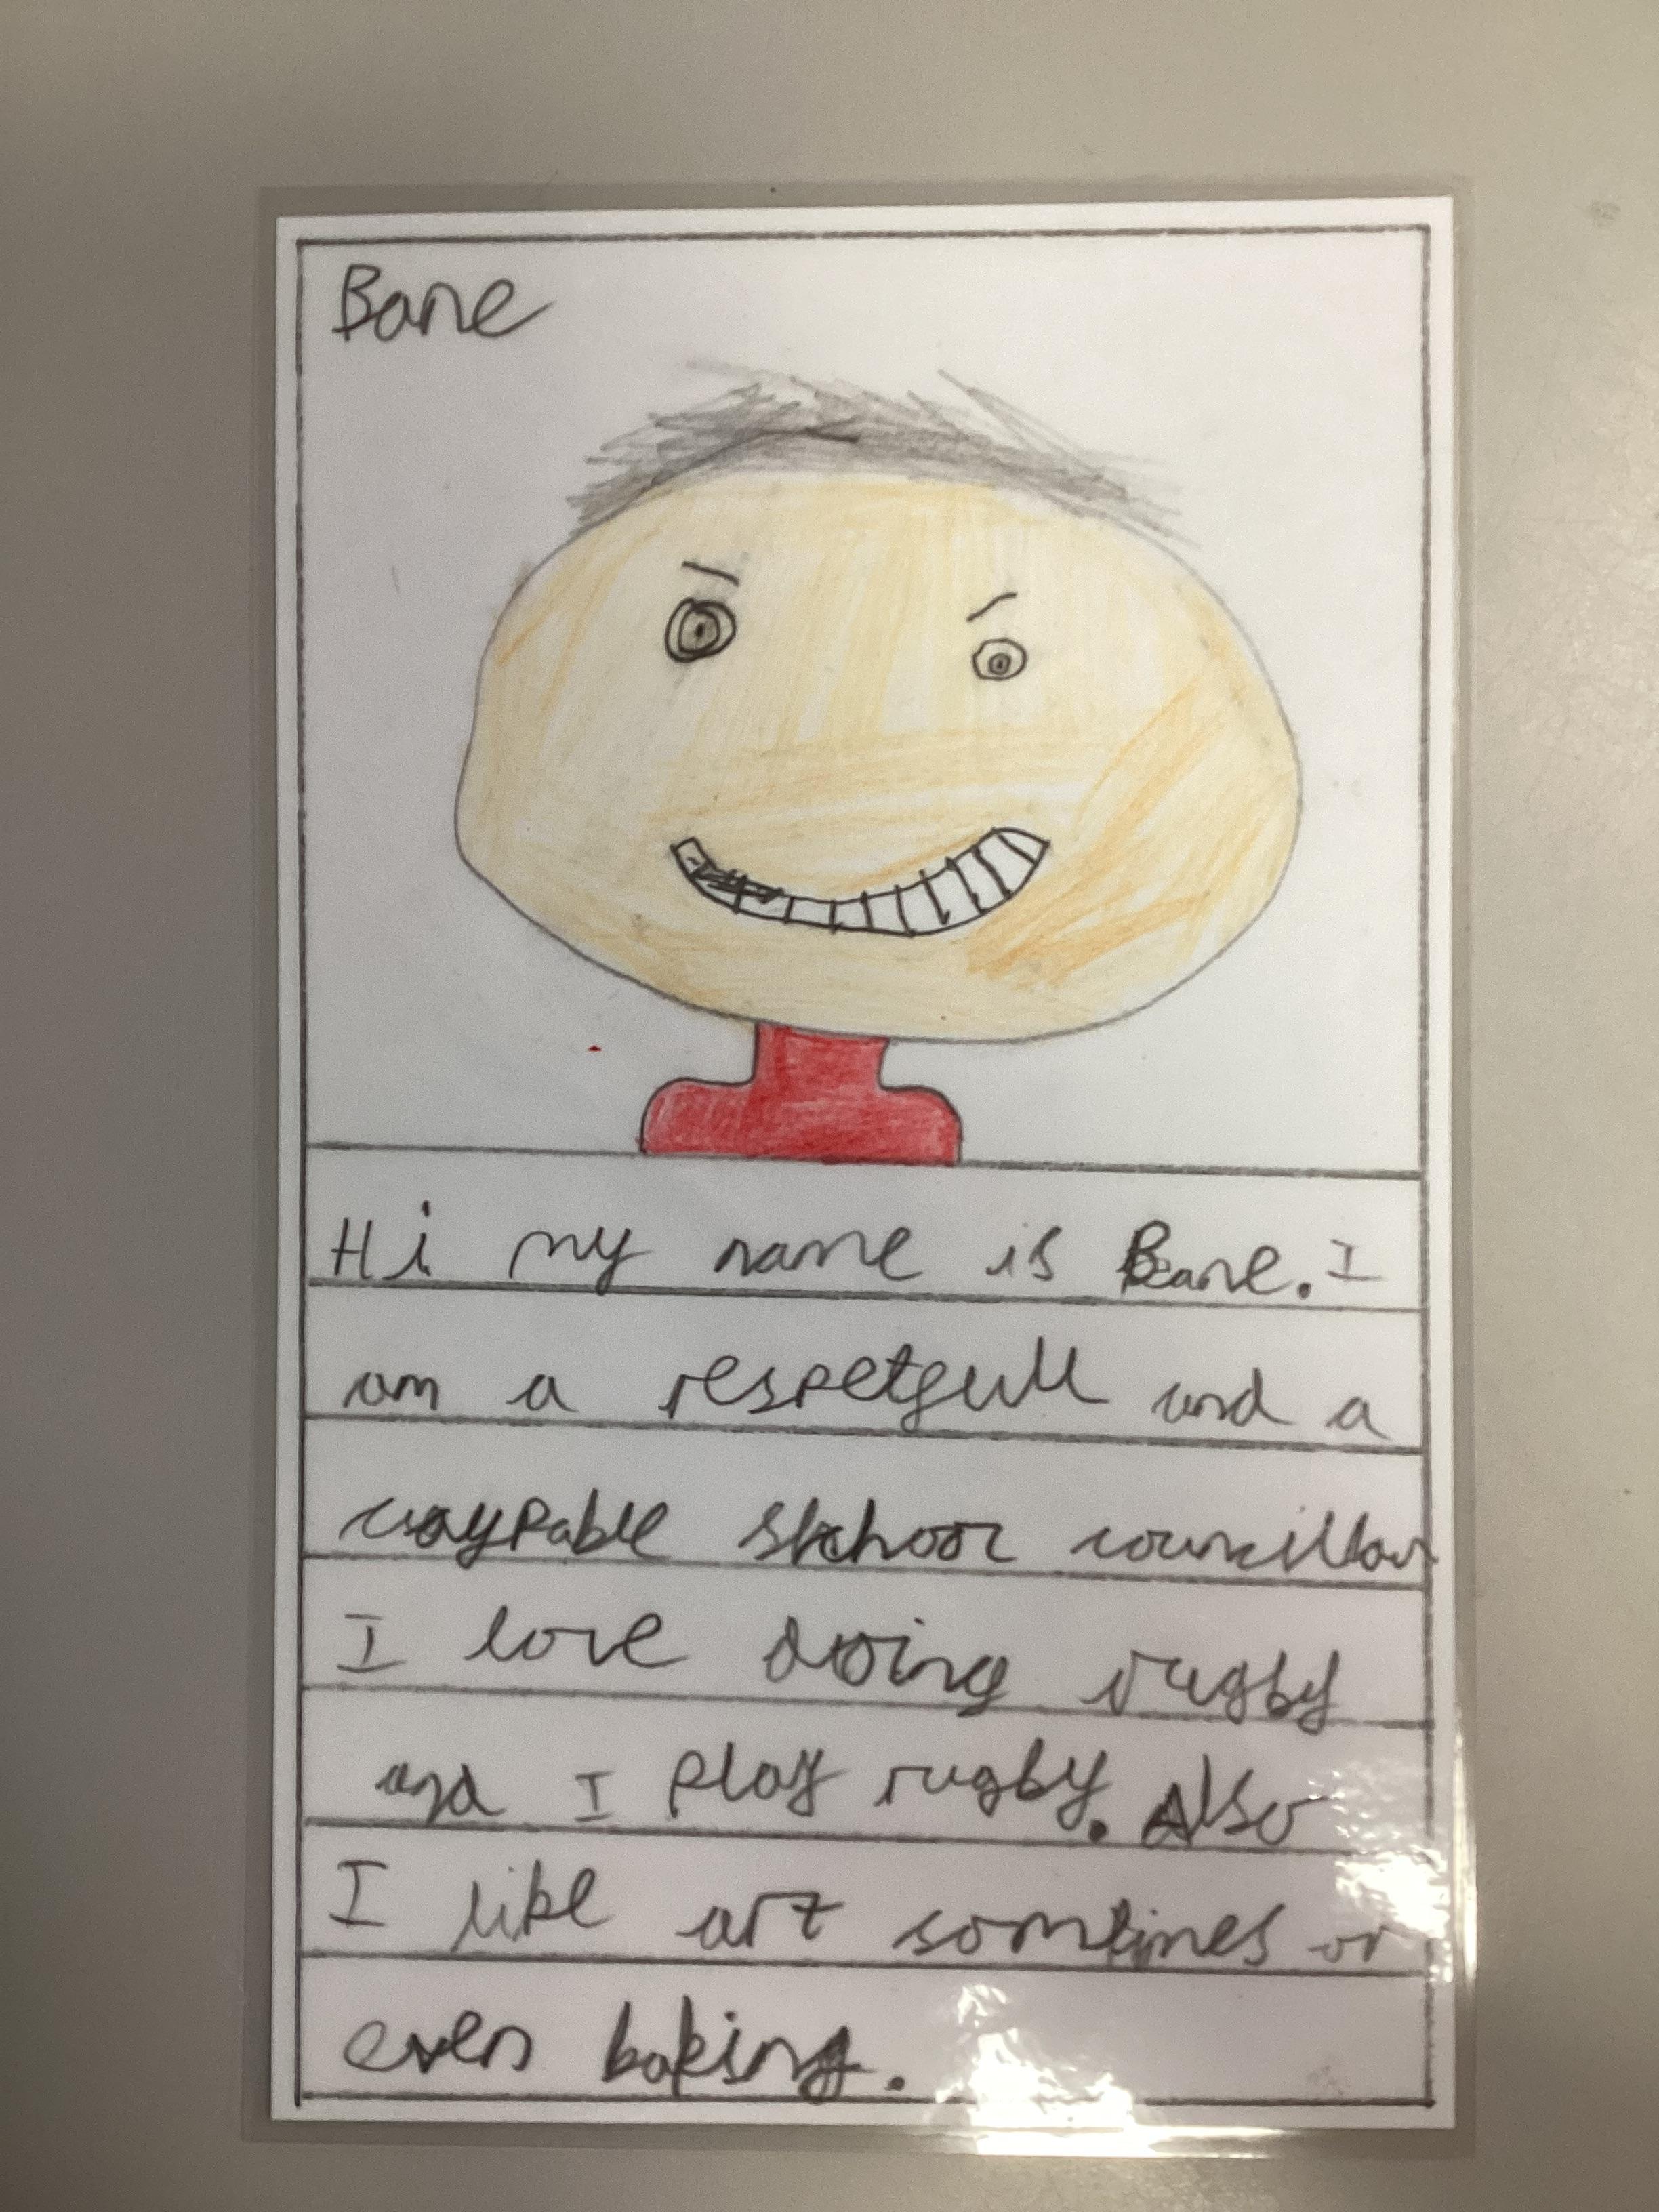 Bane
Hi my name is Bane. I
am a respetfull and a
caypable skhool councillor
I love doing rugby
and I play rugby. Also
I like art somtimes or
even baking.